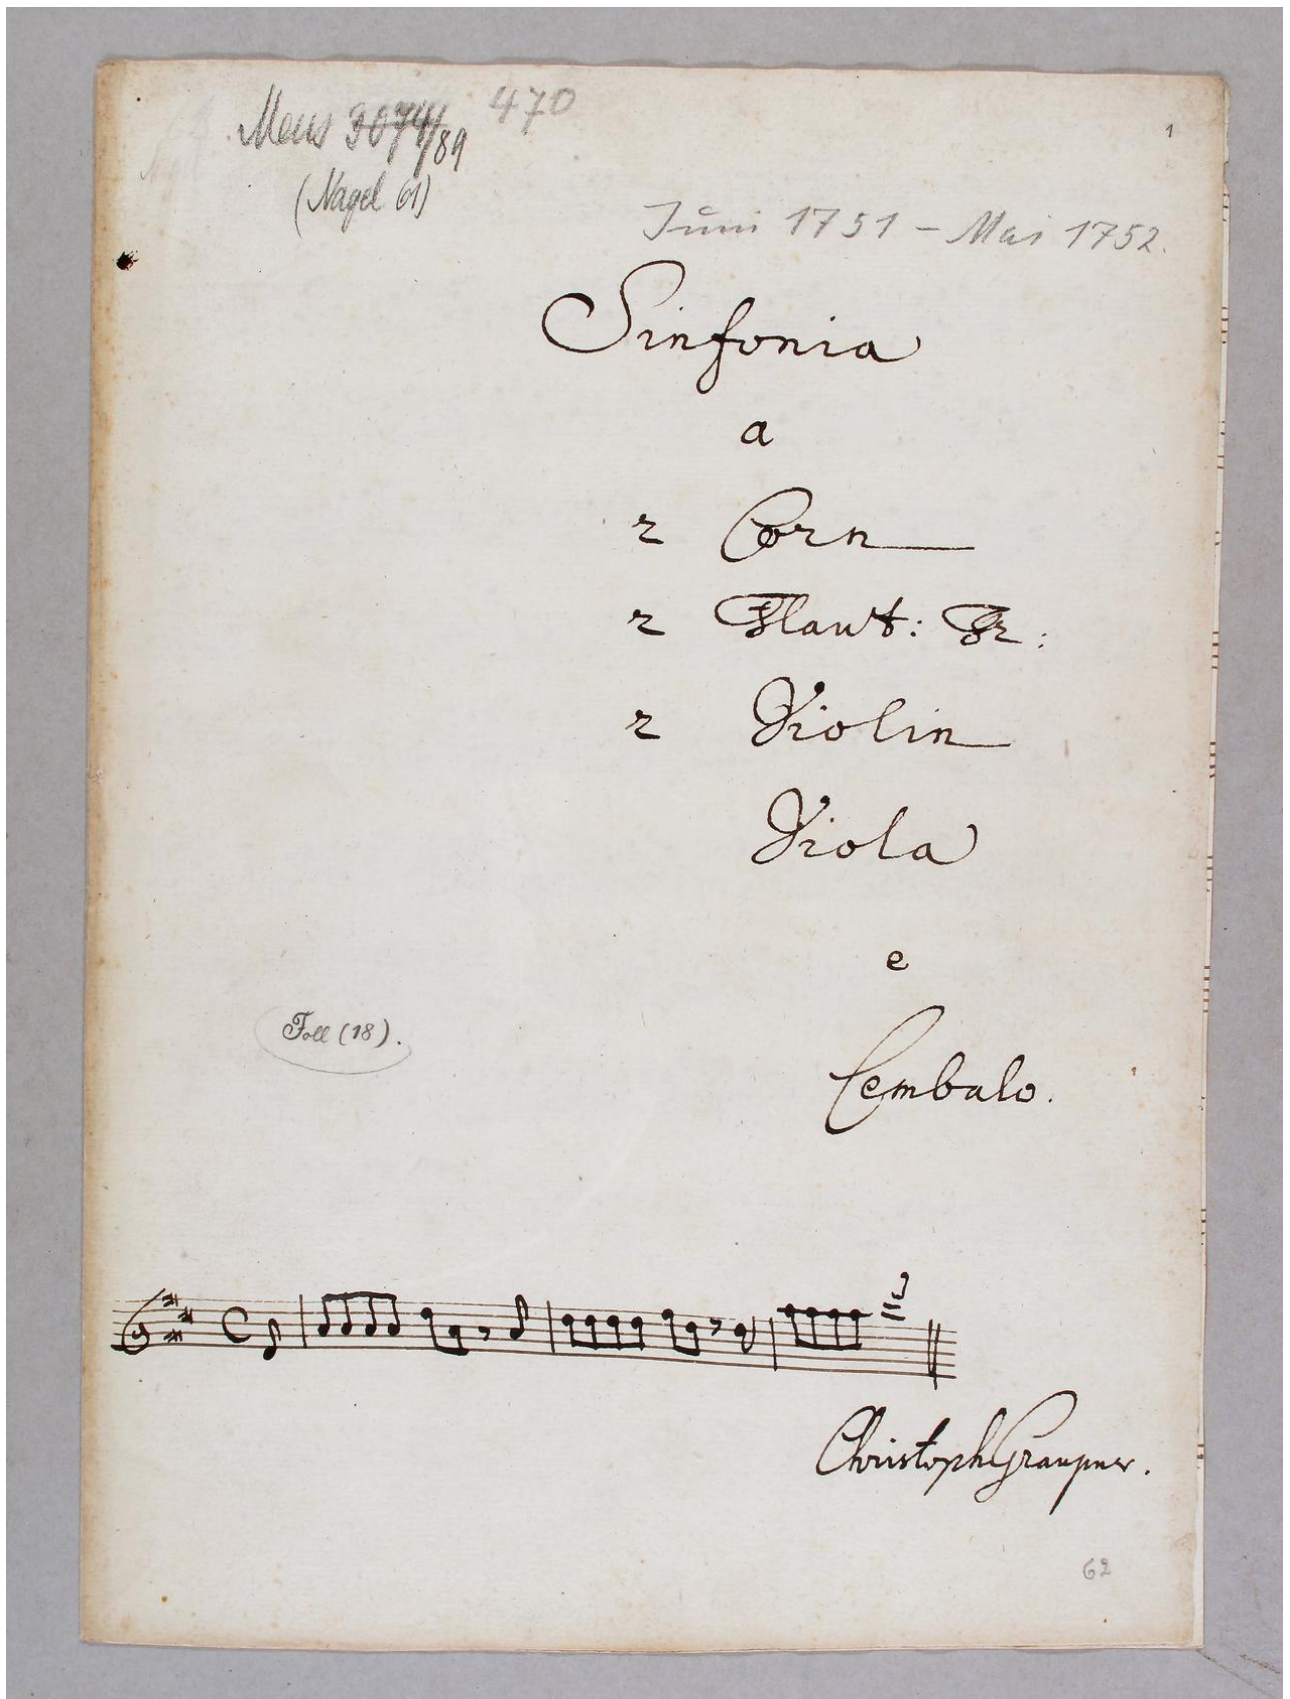 Mus 3074/89 470
1
(Nagel 61)
Juni 1751 – Mai 1752.
Sinfonia
a
2 Corn
2 Flaut: Tr:
2 Violin
Viola
e
Foll (18).
Cembalo.
Christoph Graupner.
62